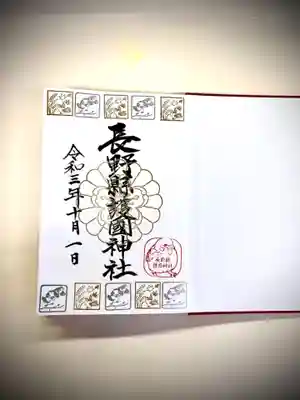 長野縣護國神社
令和三年十月一日